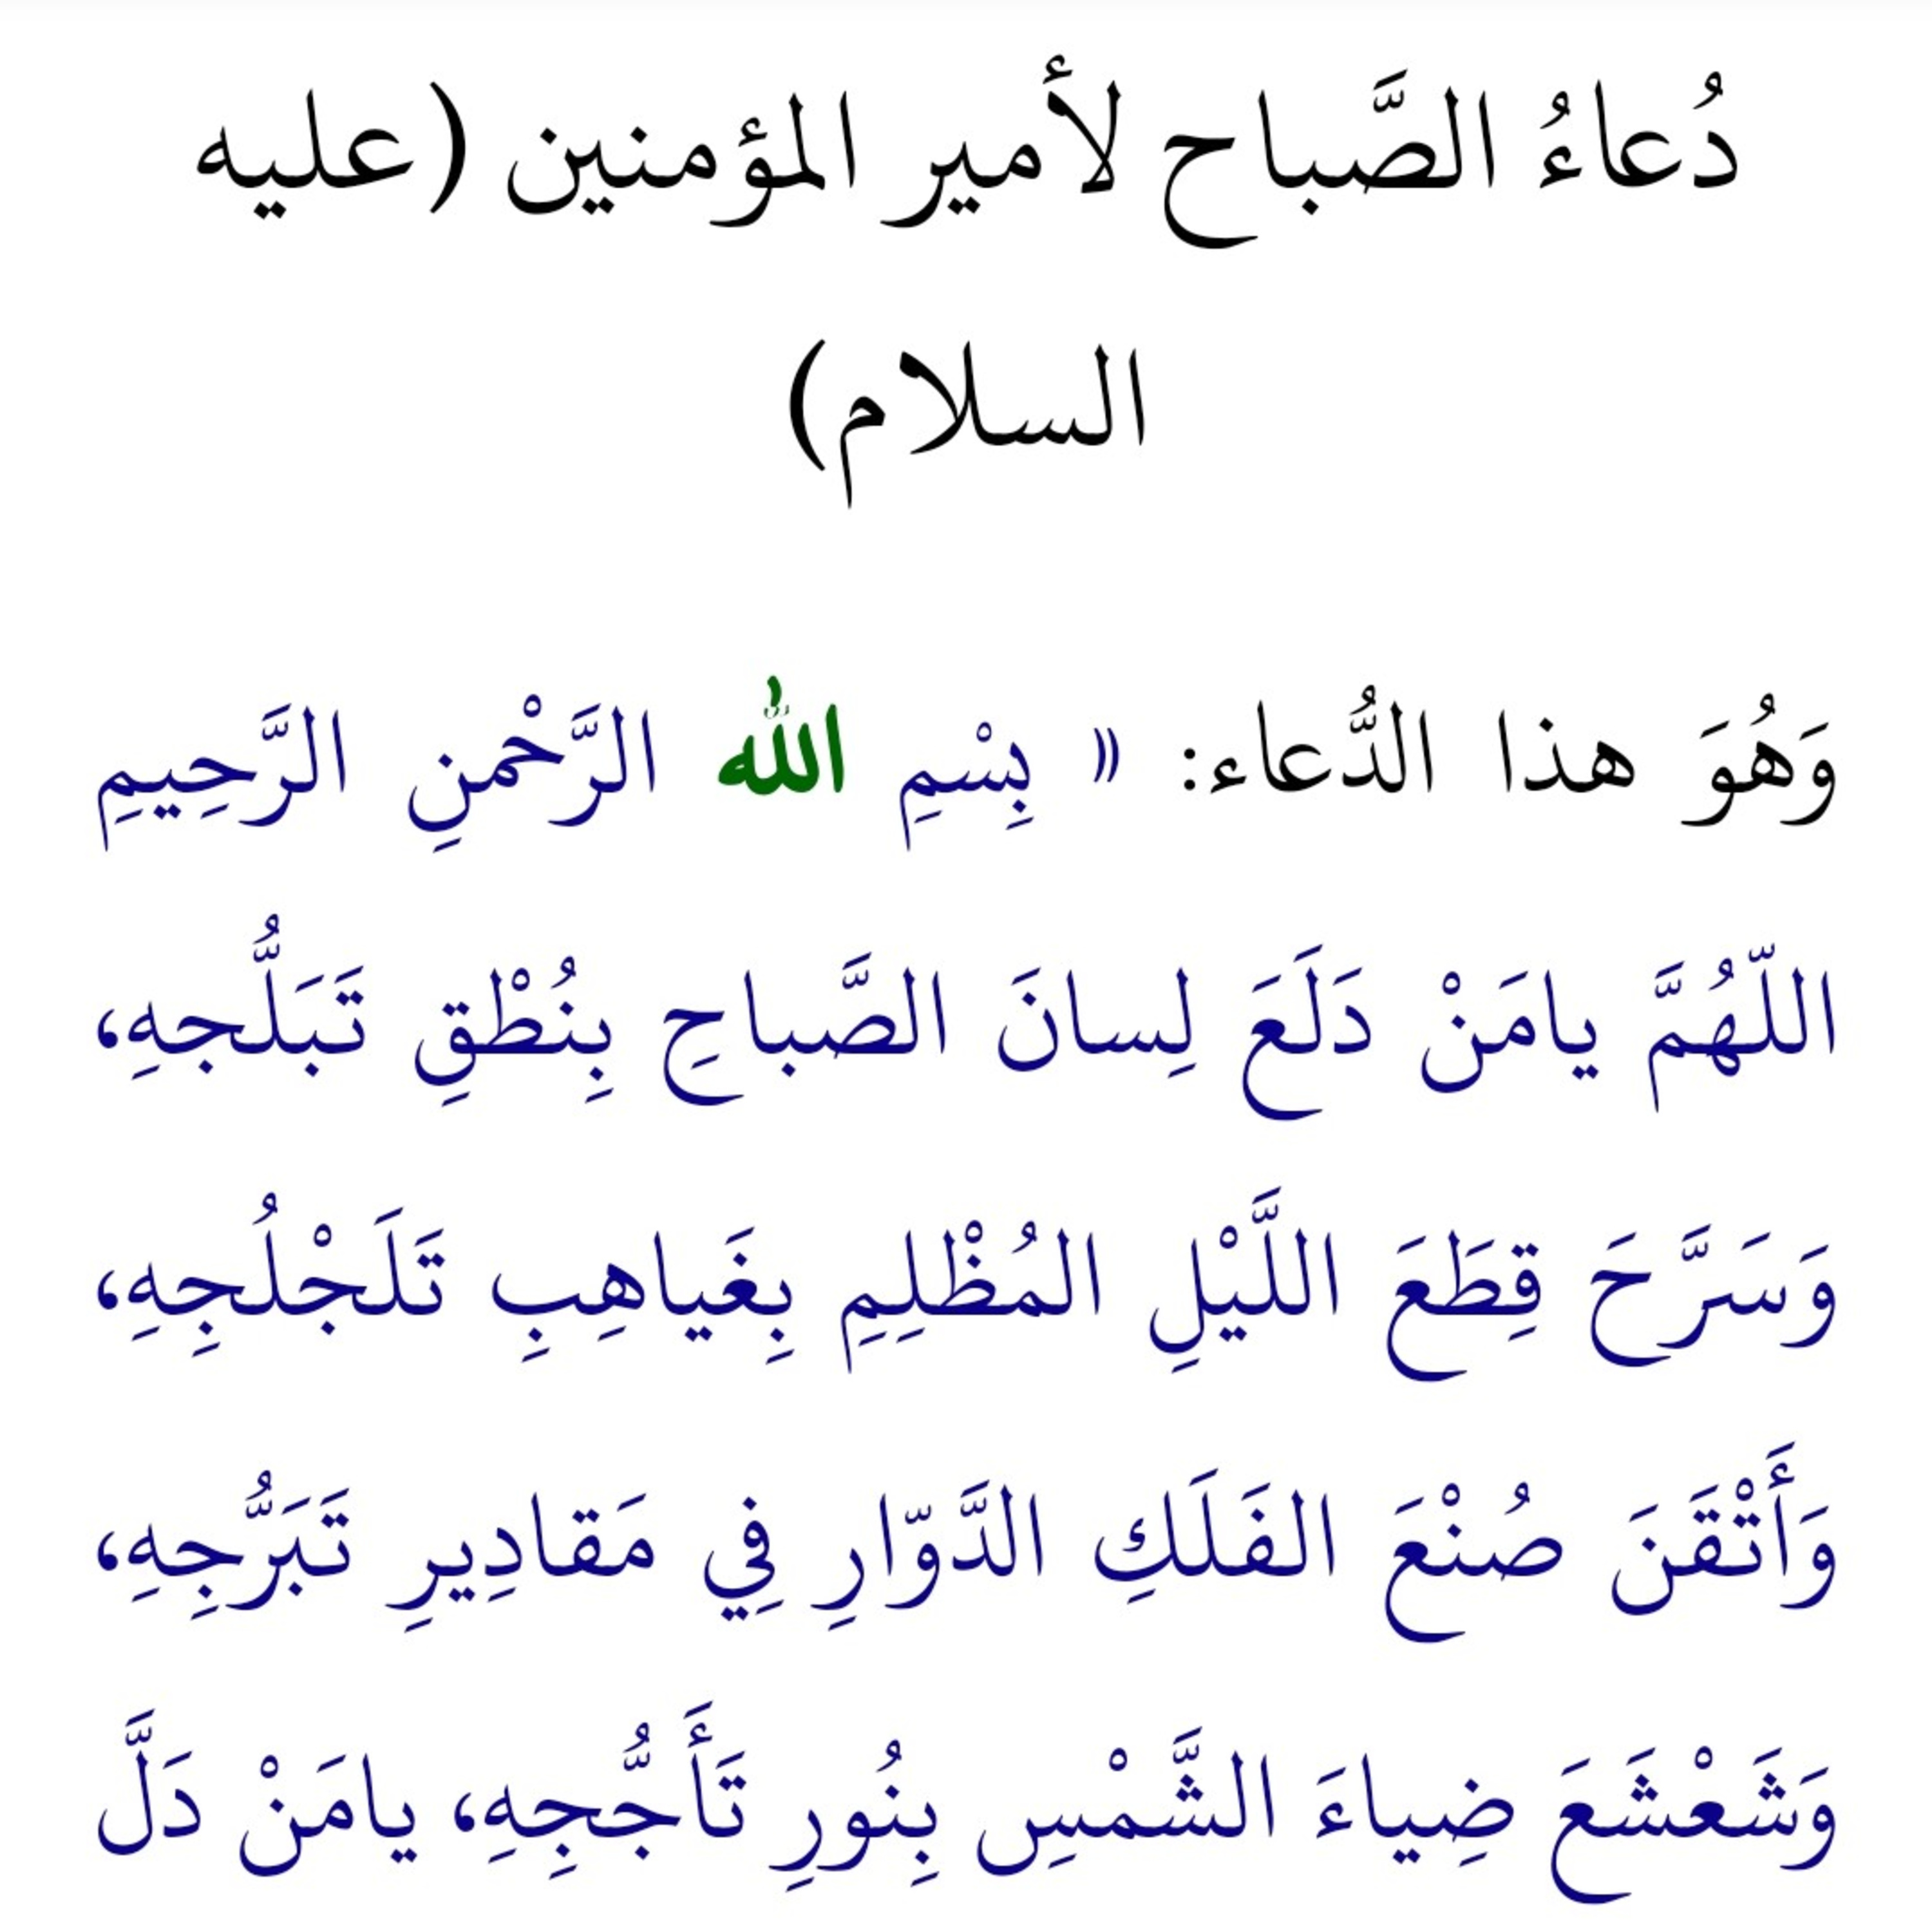 دُعاءُ الصَّباح لأمير المؤمنين (عليه
السلام)
وَهُوَ هذا الدُّعاء: (( بِسْمِ الله الرَّحْمنِ الرَّحِيمِ
اللّهُمَّ يامَنْ دَلَعَ لِسانَ الصَّباحِ بِنُطْقِ تَبَلُّجهِ،
وَسَرَّحَ قِطَعَ اللَّيْلِ المُظْلِمِ بِغَياهِبِ تَلَجْلُجِهِ،
وَأَتْقَنَ صُنْعَ الفَلَكِ الدَّوّارِ فِي مَقادِيرِ تَبَرُّجِهِ،
وَشَعْشَعَ ضِياءَ الشَّمْسِ بِنُورِ تَأَجُّجِهِ، يامَنْ دَلَّ